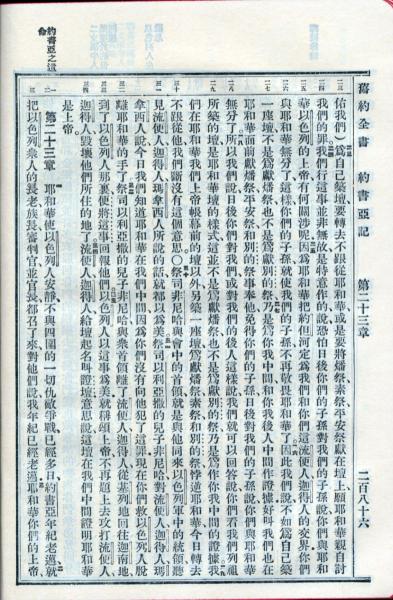 舊約全書 約書亞記 第二十三章 二百八十六
佑我們）爲自己築壇要轉去不跟從耶和華或是要將燔祭素祭平安祭獻在壇上願耶和華親自討
我們的罪我們行這事並非無故是特意作的說恐怕日後你們的子孫對我們的子孫說你們與耶和
華以色列的上帝有何關涉呢因爲耶和華把約但河定爲我們和你們這流便人迦得人的交界你們
與耶和華無分了這樣你們的子孫就使我們的子孫不再敬畏耶和華了因此我們說不如爲自己築
一座壇不是爲獻燔祭也不是爲獻別的祭乃是爲你我中間和你我後人中間作證據好叫我們也在
耶和華面前獻燔祭平安祭和別的祭事奉他免得你們的子孫日後對我們的子孫說你們與耶和華
無分了所以我們說日後你們對我們或對我們的後人這樣說我們就可以回答說你們看我們列祖
所築的壇是耶和華壇的樣式這並不是爲獻燔祭也不是爲獻別的祭乃是爲作你我中間的證據我
們在耶和華我們上帝帳幕前的壇以外另築一座壇爲獻燔祭素祭和別的祭悖逆耶和華今日轉去
不跟從他我們斷沒有這個意思○祭司非尼哈與會中的首領就是與他同來以色列軍中的統領聽
見流便人迦得人瑪拿西人所說的話就都以爲美祭司以利亞撒的兒子非尼哈對流便人迦得人瑪
拿西人說今日我們知道耶和華在我們中間因爲你們沒有向他犯了這罪現在你們救以色列人脫
離耶和華的手了祭司以利亞撒的兒子非尼哈與衆首領離了流便人迦得人從基列地回往迦南地
到了以色列人那裏便將這事回報他們以色列人以這事爲美就稱頌上帝不再題上去攻打流便人
迦得人毀壞他們所住的地了流便人迦得人給壇起名叫證壇意思說這壇在我們中間證明耶和華
是上帝
第二十三章 耶和華使以色列人安靜不與四圍的一切仇敵爭戰已經多日約書亞年紀老邁就
把以色列衆人的長老族長審判官並官長都召了來對他們說我年紀已經老邁耶和華你們的上帝
約書亞之遺命